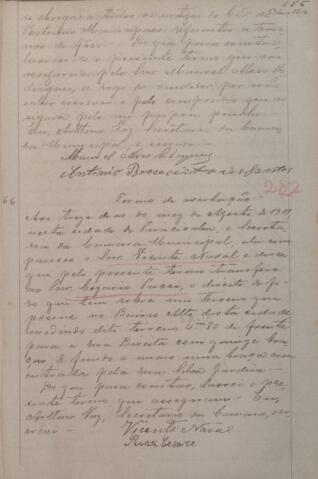 155
se obriga a todos os artigos do Cod. de
Posturas Municipaes referentes a terre-
nos de foro. Do que para constar,
lavrou-se o presente termo que vai
assignado pelo Snr. Manoel Alves
a rogo do vendedor, por não
saber escrever e pelo comprador que as-
signa pelo seu proprio punho.
Eu, Arthur Vaz, Secretario da Cama-
ra Municipal, o escrevi.
Manoel Alves
Antonio dos Santos
202
66
Termo de averbação
Aos treze dias do mez de Agosto de 1909,
nesta cidade de a Secreta-
ria da Camara Municipal, ahi com-
pareceo o Snr. Vicente Naval e disse
que pelo presente termo transfere
ao Snr. Cezario Pucci, o direito de fo-
ro que tem sobre um terreno que
possue no Bairro Alto, desta cidade
medindo dito terreno 4m,70 de frente
para a rua Direita com quinze bra-
ças de fundo e mais uma braça con-
centrada pela rua Silva Jardim.
Do que para constar, lavrei o pre-
sente termo, que assignaram. Eu,
Arthur Vaz, Secretario da Camara, es-
crevi.
Vicente Naval
Pucci Cesare